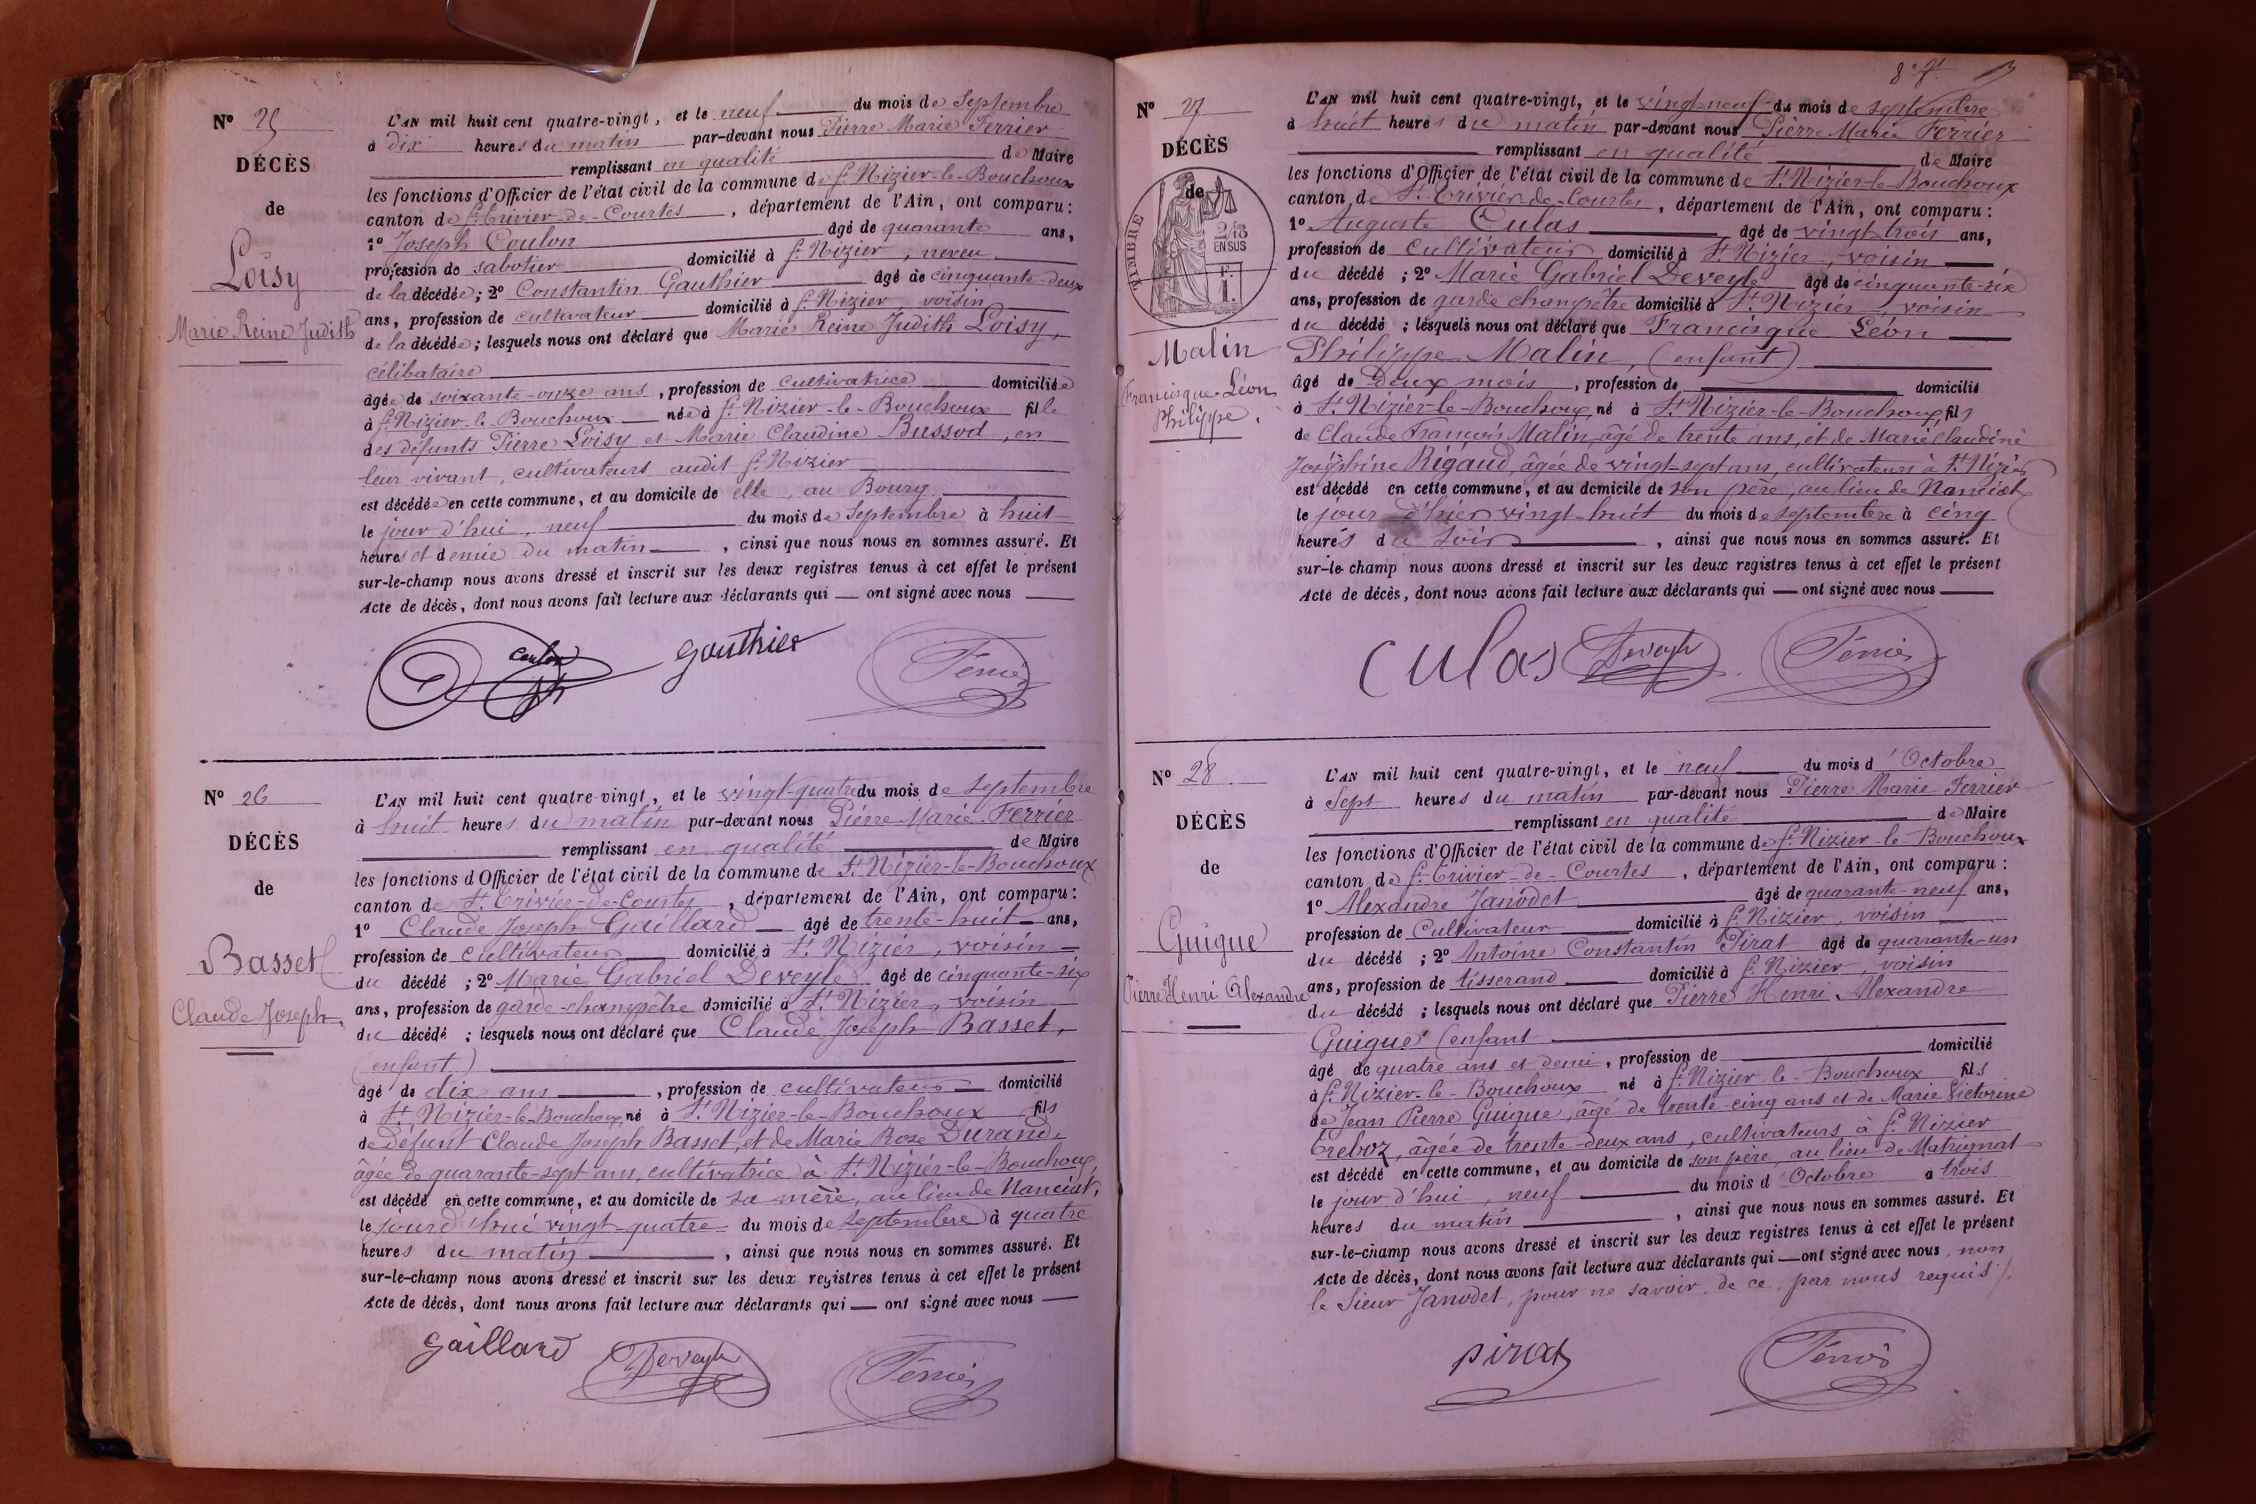 N° 25
DÉCÈS
de
Loisy
Marie Reine Judith
L'AN mil huit cent quatre-vingt, et le neuf du mois de Septembre
à dix heures du matin par-devant nous Pierre Marie Ferrier
remplissant en qualité de Maire
les fonctions d'Officier de l'état civil de la commune de St Nizier-le-Bouchoux
canton de St Trivier-de-Courtes, département de l'Ain, ont comparu:
1° Joseph Coulon âgé de quarante ans,
profession de sabotier domicilié à St Nizier, neveu
de la décédée; 2° Constantin Gauthier âgé de cinquante-deux
ans, profession de cultivateur domicilié à St Nizier voisin
de la décédée; lesquels nous ont déclaré que Marie Reine Judith Loisy,
célibataire
âgée de soixante-onze ans, profession de cultivatrice domiciliée
à St Nizier-le-Bouchoux née à St Nizier-le-Bouchoux fille
des défunts Pierre Loisy et Marie Claudine Bussod, en
leur vivant, cultivateurs audit St Nizier
est décédée en cette commune, et au domicile de elle, au Bourg
le jour d'hui, neuf du mois de Septembre à huit
heures et demie du matin, ainsi que nous nous en sommes assuré. Et
sur-le-champ nous avons dressé et inscrit sur les deux registres tenus à cet effet le présent
Acte de décès, dont nous avons fait lecture aux déclarants qui — ont signé avec nous
Coulon Gauthier Ferrier
N° 26
DÉCÈS
de
Basset
Claude Joseph
L'AN mil huit cent quatre-vingt, et le vingt-quatre du mois de septembre
à huit heures du matin par-devant nous Pierre Marie Ferrier
remplissant en qualité de Maire
les fonctions d'Officier de l'état civil de la commune de St Nizier-le-Bouchoux
canton de St Trivier-de-Courtes, département de l'Ain, ont comparu:
1° Claude Joseph Gaillard âgé de trente-huit ans,
profession de cultivateur domicilié à St Nizier, voisin
du décédé; 2° Marie Gabriel Deveyle âgé de cinquante-six
ans, profession de garde-champêtre domicilié à St Nizier, voisin
du décédé; lesquels nous ont déclaré que Claude Joseph Basset,
(enfant)
âgé de dix ans, profession de cultivateur domicilié
à St Nizier-le-Bouchoux né à St Nizier-le-Bouchoux fils
de défunt Claude Joseph Basset, et de Marie Rose Durand,
âgée de quarante-sept ans, cultivatrice à St Nizier-le-Bouchoux,
est décédé en cette commune, et au domicile de sa mère, au lieu de Nanciat,
le jour d'hui vingt-quatre du mois de septembre à quatre
heures du matin, ainsi que nous nous en sommes assuré. Et
sur-le-champ nous avons dressé et inscrit sur les deux registres tenus à cet effet le présent
Acte de décès, dont nous avons fait lecture aux déclarants qui — ont signé avec nous
Gaillard Deveyle Ferrier
N° 27
DÉCÈS
de
TIMBRE
2/10
EN SUS
Malin
Francisque Léon
Philippe.
L'AN mil huit cent quatre-vingt, et le vingt-neuf du mois de septembre
à huit heures du matin par-devant nous Pierre Marie Ferrier
remplissant en qualité de Maire
les fonctions d'Officier de l'état civil de la commune de St Nizier-le-Bouchoux
canton de St Trivier-de-Courtes, département de l'Ain, ont comparu:
1° Auguste Culas âgé de vingt-trois ans,
profession de cultivateur domicilié à St Nizier, voisin
du décédé; 2° Marie Gabriel Deveyle âgé de cinquante-six
ans, profession de garde champêtre domicilié à St Nizier, voisin
du décédé; lesquels nous ont déclaré que Francisque Léon
Philippe Malin, (enfant)
âgé de deux mois, profession de domicilié
à St Nizier-le-Bouchoux né à St Nizier-le-Bouchoux, fils
de Claude François Malin, âgé de trente ans, et de Marie Claudine
Joséphine Rigaud, âgée de vingt-sept ans, cultivateurs à St Nizier,
est décédé en cette commune, et au domicile de son père, au lieu de Nanciat
le jour d'hier vingt-huit du mois de septembre à cinq
heures du soir, ainsi que nous nous en sommes assuré. Et
sur-le-champ nous avons dressé et inscrit sur les deux registres tenus à cet effet le présent
Acte de décès, dont nous avons fait lecture aux déclarants qui — ont signé avec nous
Culas Deveyle Ferrier
N° 28
DÉCÈS
de
Guigue
Pierre Henri Alexandre
L'AN mil huit cent quatre-vingt, et le neuf du mois d'Octobre
à Sept heures du matin par-devant nous Pierre Marie Ferrier
remplissant en qualité de Maire
les fonctions d'Officier de l'état civil de la commune de St Nizier-le-Bouchoux
canton de St Trivier-de-Courtes, département de l'Ain, ont comparu:
1° Alexandre Janodet âgé de quarante-neuf ans,
profession de Cultivateur domicilié à St Nizier, voisin
du décédé; 2° Antoine Constantin Pirat âgé de quarante-un
ans, profession de tisserand domicilié à St Nizier, voisin
du décédé; lesquels nous ont déclaré que Pierre Henri Alexandre
Guigue (enfant
âgé de quatre ans et demi, profession de domicilié
à St Nizier-le-Bouchoux né à St Nizier le-Bouchoux fils
de Jean Pierre Guigue, âgé de trente-cinq ans et de Marie Victorine
Treboz, âgée de trente-deux ans, cultivateurs à St Nizier
est décédé en cette commune, et au domicile de son père, au lieu de Matrignat
le jour d'hui, neuf du mois d'Octobre à trois
heures du matin, ainsi que nous nous en sommes assuré. Et
sur-le-champ nous avons dressé et inscrit sur les deux registres tenus à cet effet le présent
Acte de décès, dont nous avons fait lecture aux déclarants qui — ont signé avec nous, non
le Sieur Janodet, pour ne savoir, de ce, par nous requis.
Pirat Ferrier